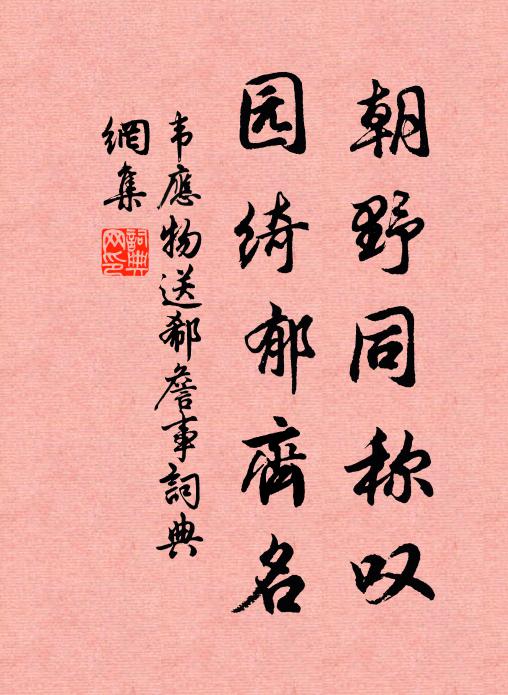 朝野同称叹
园绮郁齊名
韦應物送郗詹事詞典
網集
詞典網印